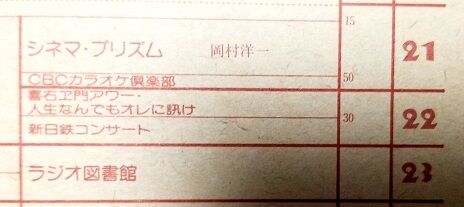 15
シネマ・プリズム 岡村洋一 21
CBCカラオケ倶楽部 50
雲右ヱ門アワー・
人生なんでもオレに訊け 22
新日鉄コンサート 30
ラジオ図書館 23